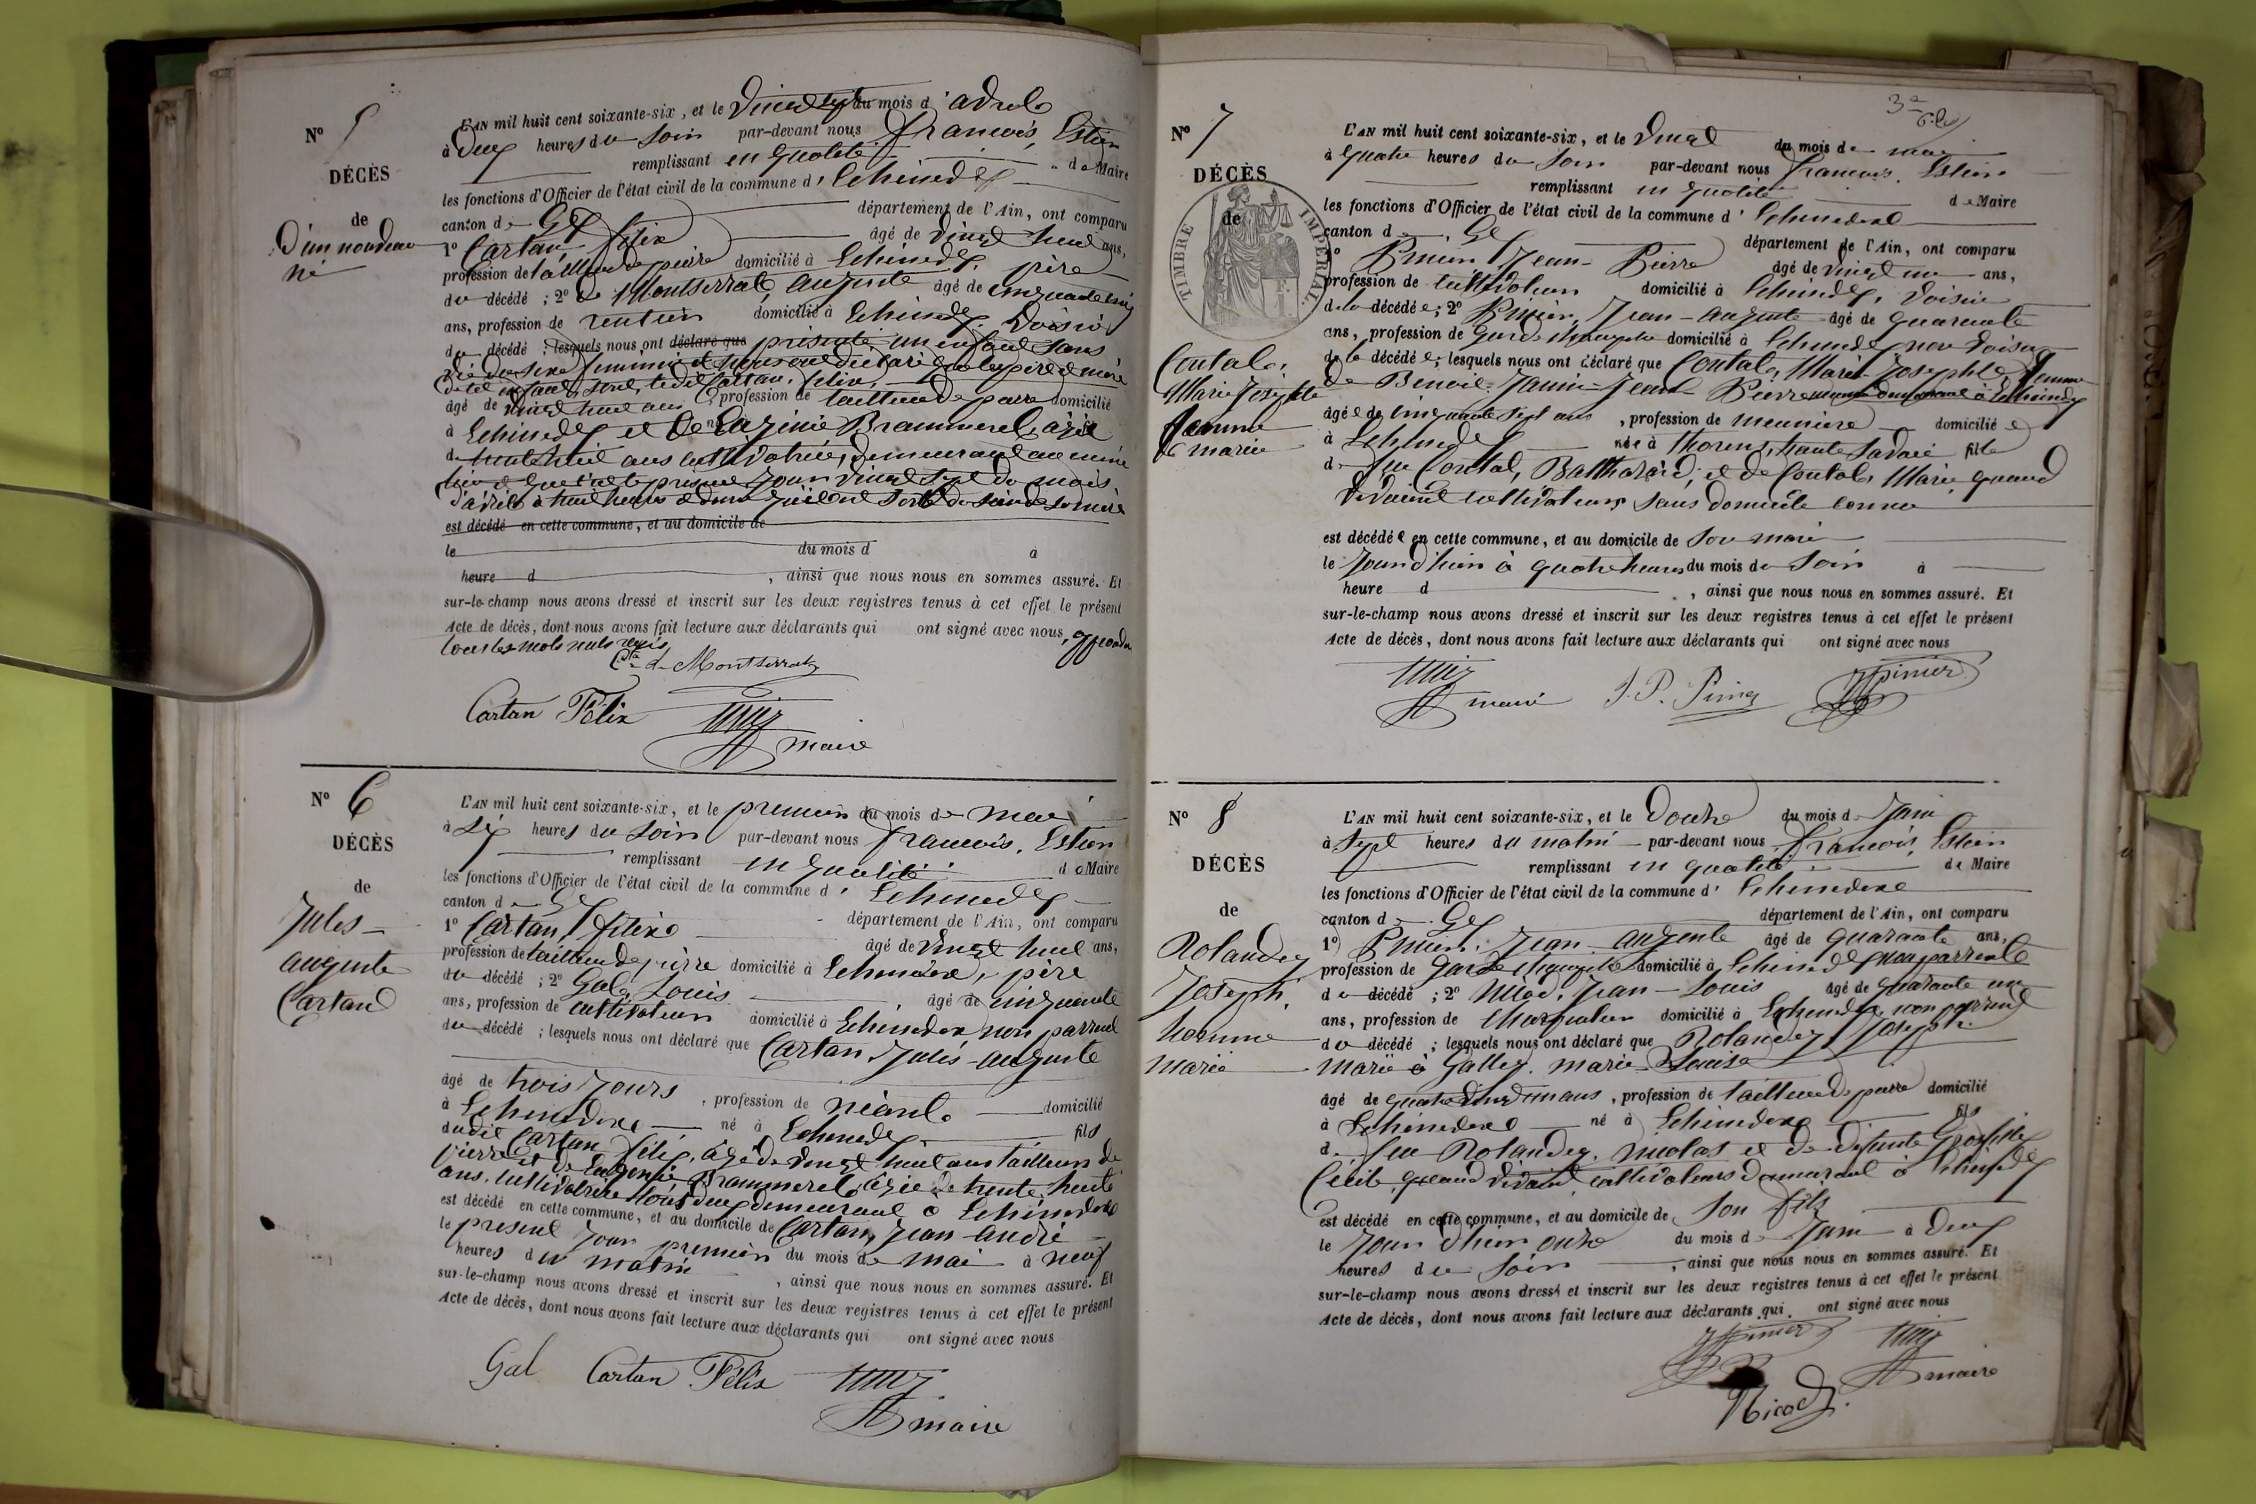 Nº 5
DÉCÈS
de
D'un nouveau
né
L'AN mil huit cent soixante-six, et le Vingt sept du mois d'avril
à deux heures du Soir par-devant nous François, Estier
remplissant en qualité de Maire
les fonctions d'Officier de l'état civil de la commune d'Echenevex
canton de Gex département de l'Ain, ont comparu
1º Cartan, félix âgé de Vingt huit ans,
profession de tailleur de pierre domicilié à Echenevex, père
du décédé ; 2º de Montserrat, auguste âgé de cinquante cinq
ans, profession de rentier domicilié à Echenevex Voisin
du décédé ; lesquels nous ont déclaré que présenté un enfant sans
vie du sexe féminin et nous ont déclaré que les père et mère
de cet enfant sont, le dit Cartan, félix,
âgé de vingt huit ans, profession de tailleur de pierre domicilié
à Echenevex et de Eugénie Brammerel âgée
de trente huit ans cultivatrice, demeurant au même
lieu et que c'est le présent jour vingt sept du mois
d'avril à huit heures et demie qu'il est sorti du sein de sa mère
est décédé en cette commune, et au domicile de
le du mois d à
heure d , ainsi que nous nous en sommes assuré. Et
sur-le-champ nous avons dressé et inscrit sur les deux registres tenus à cet effet le présent
Acte de décès, dont nous avons fait lecture aux déclarants qui ont signé avec nous, approuvé
tous les mots nuls
de Montserrat
Cartan Félix
maire
Nº 6
DÉCÈS
de
Jules-
auguste
Cartan
L'AN mil huit cent soixante-six, et le premier du mois de mai
à Six heures du Soir par-devant nous François, Estier
remplissant en qualité de Maire
les fonctions d'Officier de l'état civil de la commune d'Echenevex
canton de Gex département de l'Ain, ont comparu
1º Cartan, félix âgé de Vingt huit ans,
profession de tailleur de pierre domicilié à Echenevex, père
du décédé ; 2º Gal, Louis âgé de cinquante
ans, profession de cultivateur domicilié à Echenevex non parrent
du décédé ; lesquels nous ont déclaré que Cartan Jules-auguste
âgé de trois jours, profession de néant domicilié
à Echenevex né à Echenevex fils
dudit Cartan félix, âgé de vingt huit ans tailleur de
pierre et de Eugénie, Brammerel âgée de trente huit
ans, cultivatrice tous deux demeurant à Echenevex
est décédé en cette commune, et au domicile de Cartan, Jean-andré
le présent jour premier du mois de mai à neuf
heures du matin, ainsi que nous nous en sommes assuré. Et
sur-le-champ nous avons dressé et inscrit sur les deux registres tenus à cet effet le présent
Acte de décès, dont nous avons fait lecture aux déclarants qui ont signé avec nous
Gal Cartan Félix
maire
Nº 7
DÉCÈS
de
TIMBRE IMPÉRIAL.
Contal,
Marie Josephte
femme
mariée
L'AN mil huit cent soixante-six, et le Vingt du mois de mai
à quatre heures du Soir par-devant nous François, Estier
remplissant en qualité de Maire
les fonctions d'Officier de l'état civil de la commune d'Echenevex
canton de Gex département de l'Ain, ont comparu
1º Prinier, Jean-Pierre âgé de vingt un ans,
profession de cultivateur domicilié à Echenevex, Voisin
de la décédée ; 2º Prinier, Jean-auguste âgé de quarante
ans, profession de Garde champêtre domicilié à Echenevex non Voisin
de la décédée ; lesquels nous ont déclaré que Contal, Marie Josephte, femme
de Benoit-Janin-Jean Pierre demeurant à Echenevex
âgée de cinquante sept ans, profession de meunière domiciliée
à Echenevex née à Thorens, haute Savoie fille
de feu Contal, Balthazard, et de Contal, Marie, quand
Vivaient cultivateurs sans domicile connu
est décédée en cette commune, et au domicile de Son mari
le Jourd'hier à quatre heures du mois du Soir à
heure d , ainsi que nous nous en sommes assuré. Et
sur-le-champ nous avons dressé et inscrit sur les deux registres tenus à cet effet le présent
Acte de décès, dont nous avons fait lecture aux déclarants qui ont signé avec nous
maire J. P. Prinier
Nº 8
DÉCÈS
de
Rolandez
Joseph
homme
marié
L'AN mil huit cent soixante-six, et le Douze du mois de Juin
à Sept heures du matin par-devant nous François, Estier
remplissant en qualité de Maire
les fonctions d'Officier de l'état civil de la commune d'Echenevex
canton de Gex département de l'Ain, ont comparu
1º Prinier, Jean-auguste âgé de quarante ans,
profession de Garde champêtre domicilié à Echenevex non parrent
du décédé ; 2º Nicod, Jean-Louis âgé de quarante un
ans, profession de Charpentier domicilié à Echenevex, non parrent
du décédé ; lesquels nous ont déclaré que Rolandez, Joseph
marié à Galley, marie-Louise
âgé de quatre vingt un ans, profession de tailleur de pierre domicilié
à Echenevex né à Echenevex fils
de feu Rolandez, Nicolas et de défunte
Cécile quand vivaient cultivateurs demeurant à Echenevex
est décédé en cette commune, et au domicile de Son fils
le Jour d'hier onze du mois de Juin à Deux
heures du Soir, ainsi que nous nous en sommes assuré. Et
sur-le-champ nous avons dressé et inscrit sur les deux registres tenus à cet effet le présent
Acte de décès, dont nous avons fait lecture aux déclarants qui ont signé avec nous
maire
Nicod